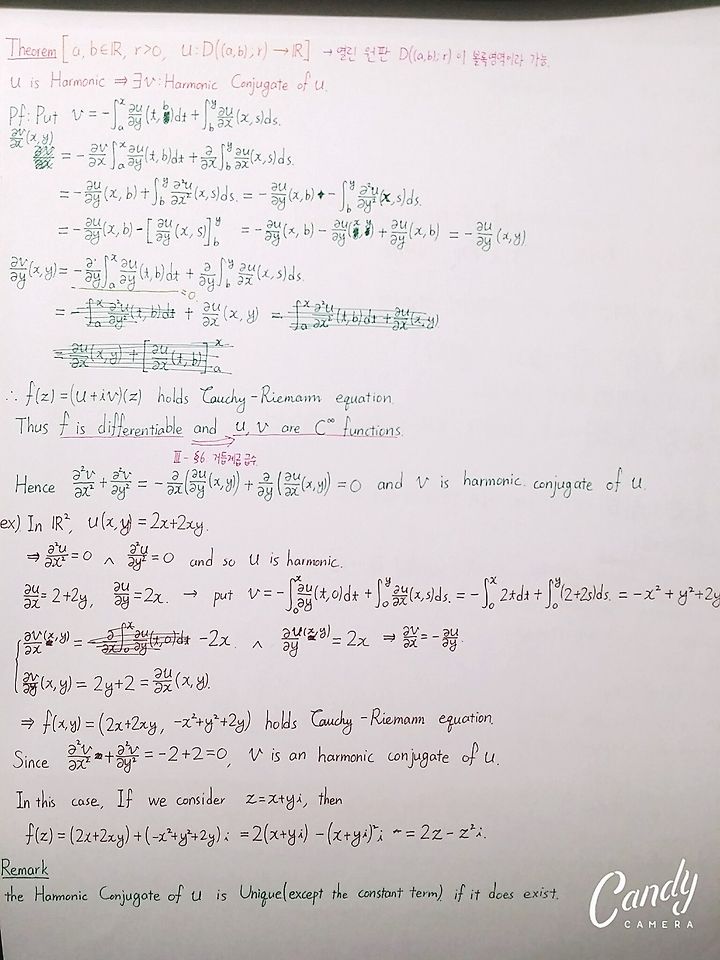 Theorem [a, b∈ℝ, r>0, u: D((a,b);r) → ℝ] → 열린 원판 D((a,b);r)이 볼록영역이라 가능.
u is Harmonic ⇒ ∃v: Harmonic Conjugate of u.
Pf: Put v = -∫_a^x ∂u/∂y(t,b)dt + ∫_b^y ∂u/∂x(x,s)ds.
∂v/∂x(x,y) = -∂/∂x∫_a^x ∂u/∂y(t,b)dt + ∂/∂x∫_b^y ∂u/∂x(x,s)ds.
= -∂u/∂y(x,b) + ∫_b^y ∂²u/∂x²(x,s)ds. = -∂u/∂y(x,b) - ∫_b^y ∂²u/∂y²(x,s)ds.
= -∂u/∂y(x,b) - [∂u/∂y(x,s)]_b^y = -∂u/∂y(x,b) - ∂u/∂y(x,y) + ∂u/∂y(x,b) = -∂u/∂y(x,y)
∂v/∂y(x,y) = -∂/∂y∫_a^x ∂u/∂y(t,b)dt + ∂/∂y∫_b^y ∂u/∂x(x,s)ds.
=0
= -∫_a^x ∂²u/∂y²(t,b)dt + ∂u/∂x(x,y) = ∫_a^x ∂²u/∂x²(t,b)dt + ∂u/∂x(x,y)
= ∂u/∂x(x,y) + [∂u/∂x(t,b)]_a^x
∴ f(z) = (u+iv)(z) holds Cauchy-Riemann equation.
Thus f is differentiable and u, v are C^∞ functions.
Ⅲ-§6 거듭제곱급수
Hence ∂²v/∂x² + ∂²v/∂y² = -∂/∂x(∂u/∂y(x,y)) + ∂/∂y(∂u/∂x(x,y)) = 0 and v is harmonic conjugate of u.
ex) In ℝ², u(x,y) = 2x+2xy.
⇒ ∂²u/∂x² = 0 ∧ ∂²u/∂y² = 0 and so u is harmonic.
∂u/∂x = 2+2y, ∂u/∂y = 2x. → put v = -∫_0^x ∂u/∂y(t,0)dt + ∫_0^y ∂u/∂x(x,s)ds. = -∫_0^x 2tdt + ∫_0^y (2+2s)ds. = -x²+y²+2y
∂v/∂x(x,y) = -∂/∂x∫_0^x ∂u/∂y(t,0)dt -2x. ∧ ∂u/∂y(x,y) = 2x ⇒ ∂v/∂x = -∂u/∂y.
∂v/∂y(x,y) = 2y+2 = ∂u/∂x(x,y).
⇒ f(x,y) = (2x+2xy, -x²+y²+2y) holds Cauchy-Riemann equation.
Since ∂²v/∂x² + ∂²v/∂y² = -2+2 = 0, v is an harmonic conjugate of u.
In this case, If we consider z=x+yi, then
f(z) = (2x+2xy) + (-x²+y²+2y)i = 2(x+yi) - (x+yi)²i = 2z - z²i.
Remark
the Harmonic Conjugate of u is Unique(except the constant term) if it does exist.
Candy
CAMERA